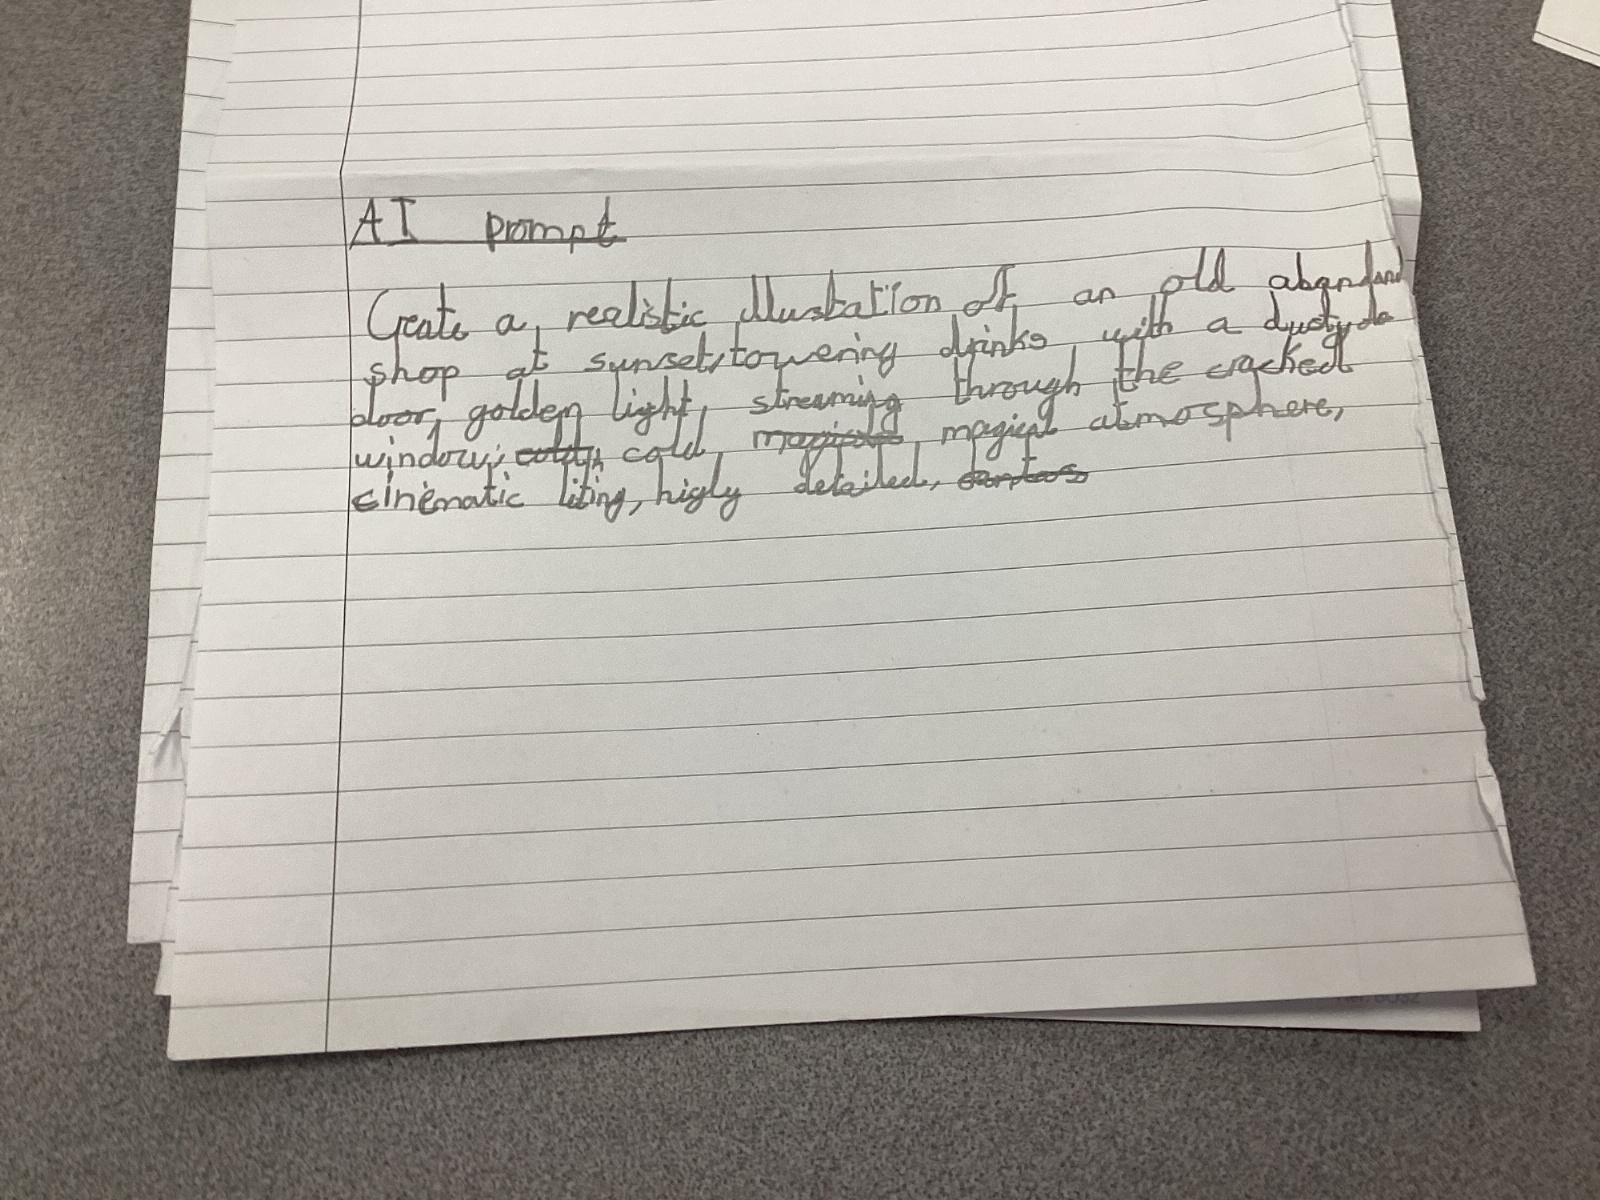 AI prompt
Create a realistic illustation of an old abandand
shop at sunset, towering drinks, with a dusty do
door, golden light, streaming through the cracked
window, cold, magical atmosphere,
cinematic liting, higly detailed,